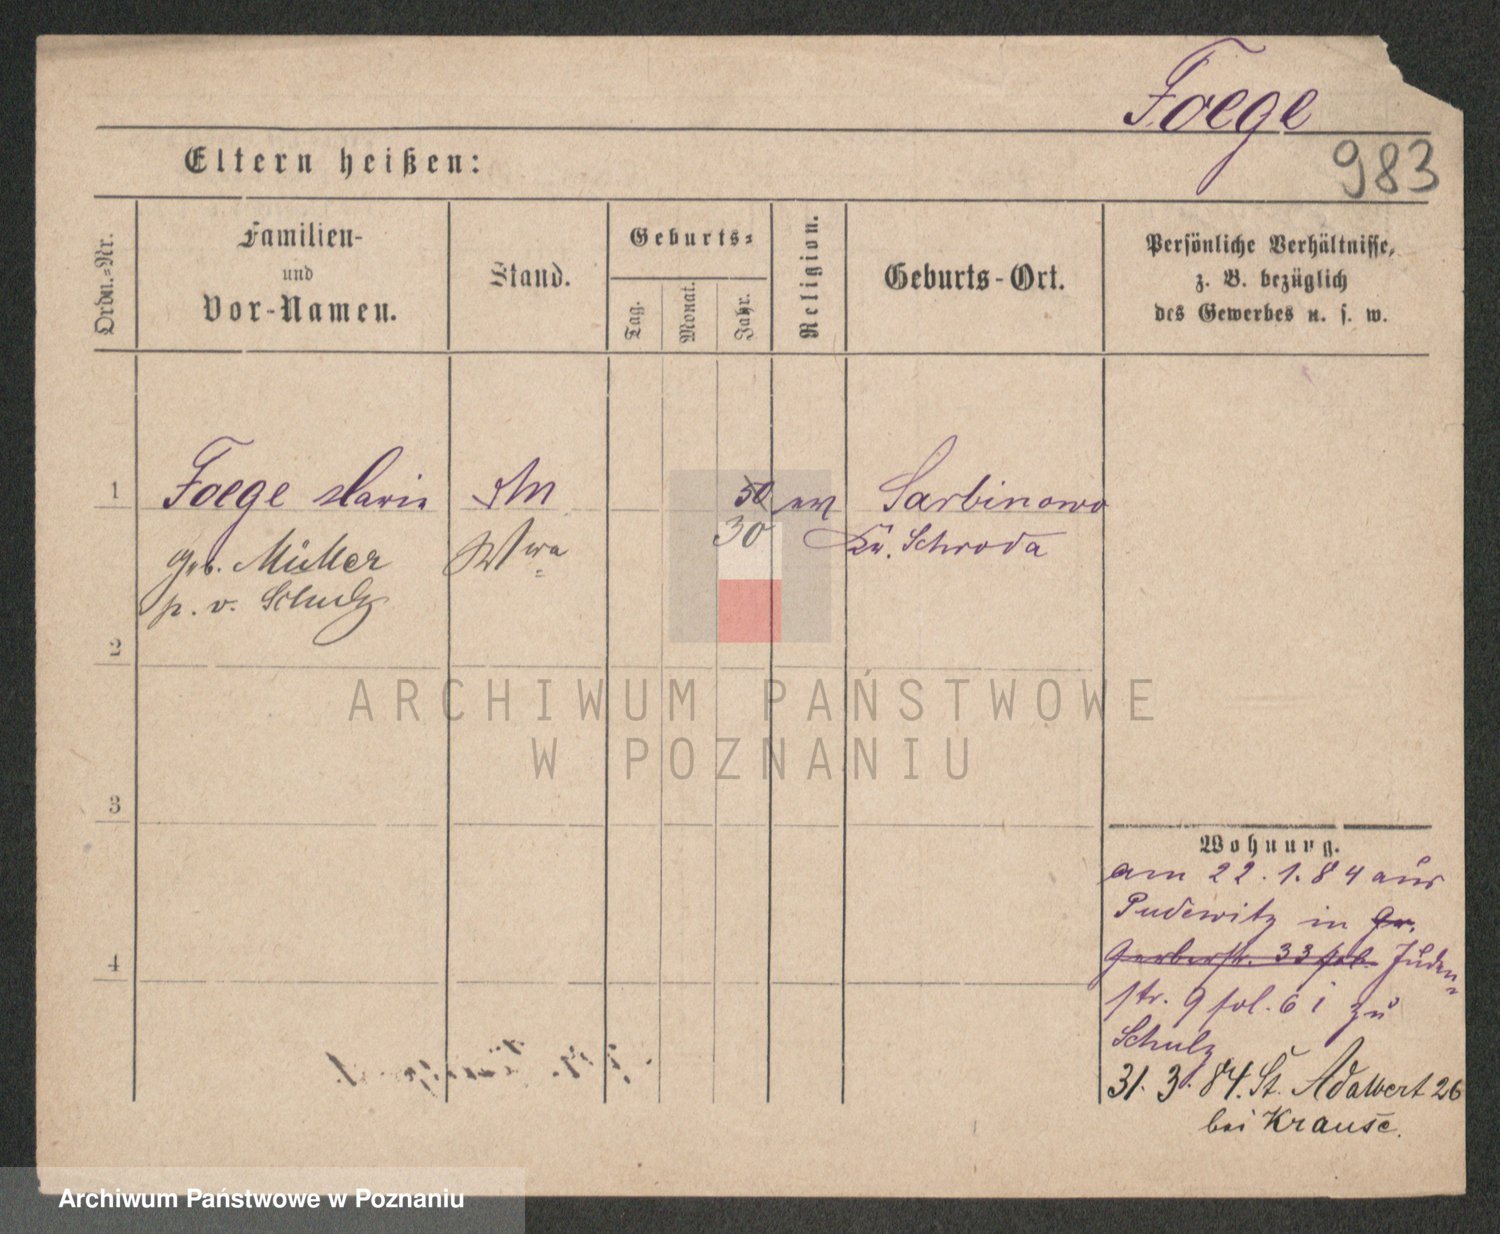 Foege
983
Eltern heißen:
Ordn.=Nr.
Familien-
und
Vor-Namen.
Stand.
Geburts=
Tag.
Monat.
Jahr.
Religion.
Geburts-Ort.
Persönliche Verhältnisse,
z. B. bezüglich
des Gewerbes u. s. w.
1
Foege Maria
50
Sarbinowo
geb. Müller
Wwe
30
Kr. Schroda
p. v. Schulz
2
3
4
Wohnung.
am 22.1.84 aus
Pudewitz in Gr.
Gerberstr. 33 Juden-
str. 9 fol. 61 zu
Schulz
31.3.84. St. Adalbert 26
bei Krause.
ARCHIWUM PAŃSTWOWE
W POZNANIU
Archiwum Państwowe w Poznaniu